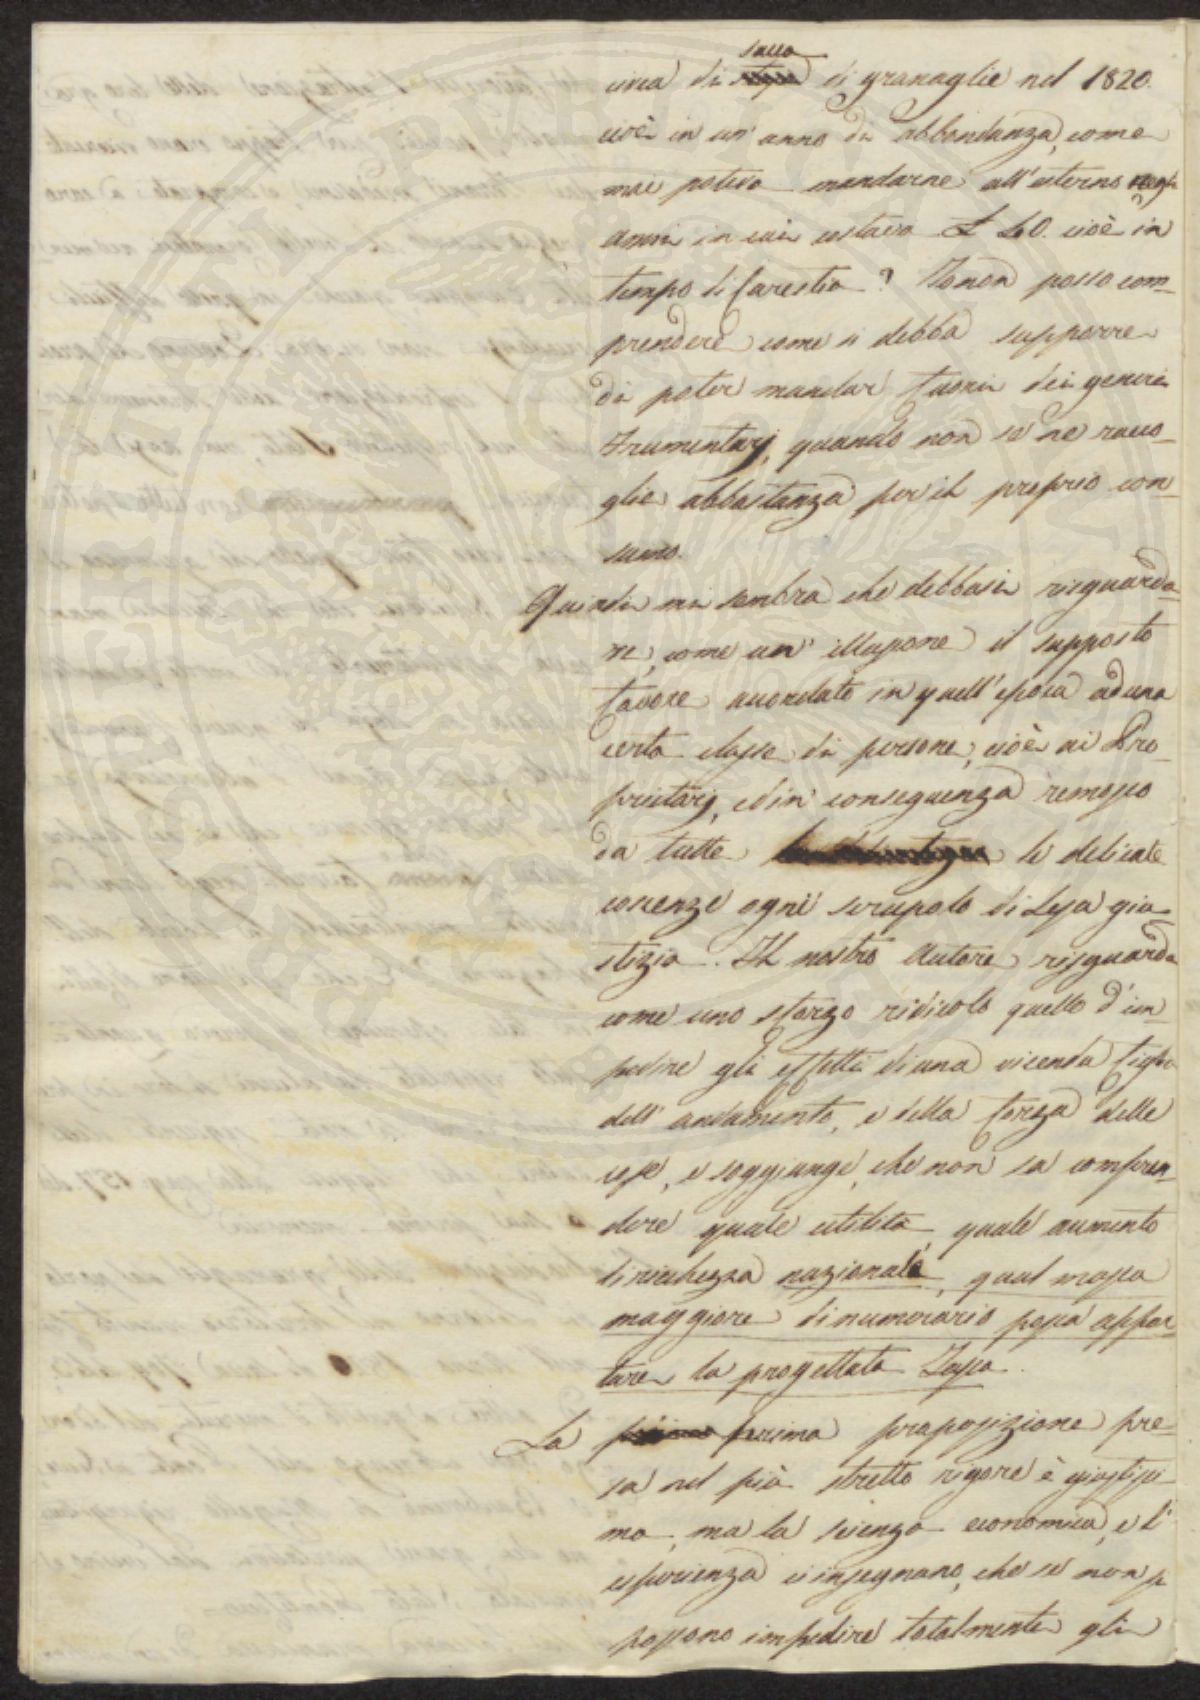 sacca
circa di di granaglie nel 1820.
cioè in un' anno di abbondanza, come
mai poteva mandarne all'esterno negli
anni in cui costava £ 60. cioè in
tempo di Carestia? Io non posso com-
prendere come si debba supporre
di poter mandar fuori dei generi
Frumentarj, quando non se ne racco-
glie abbastanza per il proprio con-
sumo.
Quindi mi sembra che debbasi risguarda-
re, come un' illusione il supposto
favore accordato in quell'epoca ad una
certa classe di persone, cioè ai Pro-
prietarj, ed in conseguenza remosso
da tutte le delicate
coscenze ogni scrupolo di Lesa giu-
stizia. Il nostro Autore risguarda
come uno sforzo ridicolo quello d'im-
pedire gli effetti di una vicenda figlia
dell' andamento, e della forza delle
cose, e soggiunge, che non sa compren-
dere quale utilità, quale aumento
di ricchezza nazionale, qual massa
maggiore di numerario possa appor-
tare la progettata Tassa.
La prima proposizione pre-
sa nel più stretto rigore è giustissi-
ma, ma la scienza economica, e l'
esperienza c'insegnano, che se non si
possono impedire totalmente gli